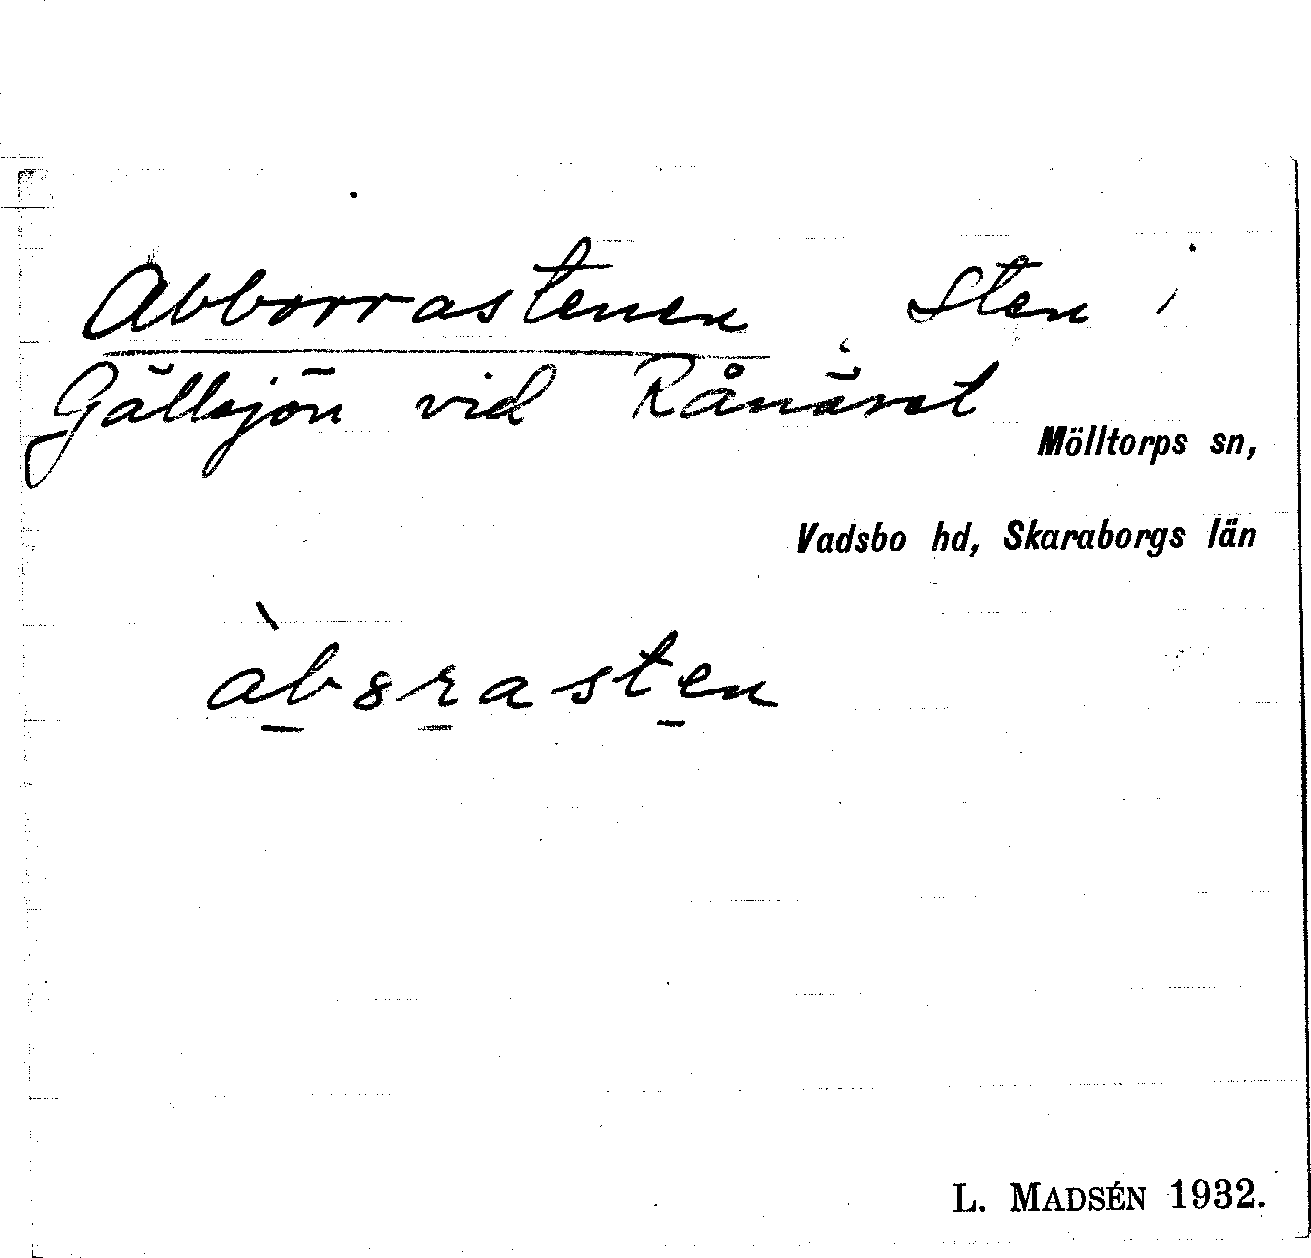 Abborrastenen Sten i
Gällsjön vid Rånäret
Mölltorps sn,
Vadsbo hd, Skaraborgs län
L. MADSÉN 1932.